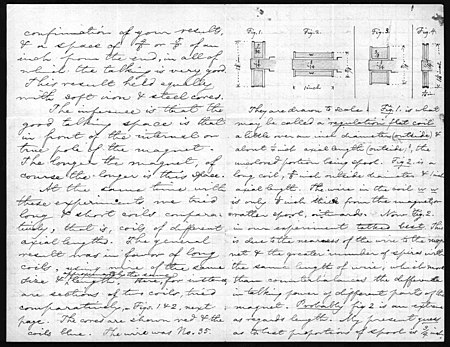 confirmation of your result,
& a space of or of an
inch from the end, in all of
which the talking is very good.
This result held equally
with soft iron & steel cores.
The inference is that the
good talking space is that
in front of the internal or
true pole of the magnet.
The longer the magnet, of
course the longer is this space.
At the same time with
these experiments we tried
long & short coils compara-
tively, that is, coils of different
axial lengths. The general
result was in favor of long
coils, using wire of the same
size & approximately the same length. Here, for instance
are sections of two coils, tried
comparatively, Figs. 1 & 2, next
page. The cores are shown red & the
coils blue. The wire was No. 35.
Fig. 1. Fig. 2. Fig. 3. Fig. 4.
They are drawn to scale. Fig. 1. is what
may be called a "regulation" flat coil
a little over an inch diameter (outside) &
about inch axial length (outside), the
uncolored portion being spool. Fig 2. is a
long coil, inch outside diameter & inch
axial length. The wire in the coil w w
is only inch thick from the magnet, or
rather spool, outwards. Now Fig. 2.
in our experiment talked best. This
is due to the nearness of the wire to the mag-
net & the greater number of spires with
the same length of wire, which more
than counterbalances the difference
in talking power of different parts of the
magnet. Probably Fig 2 is an extreme
as regards length. My present guess
as to best proportions of spool is